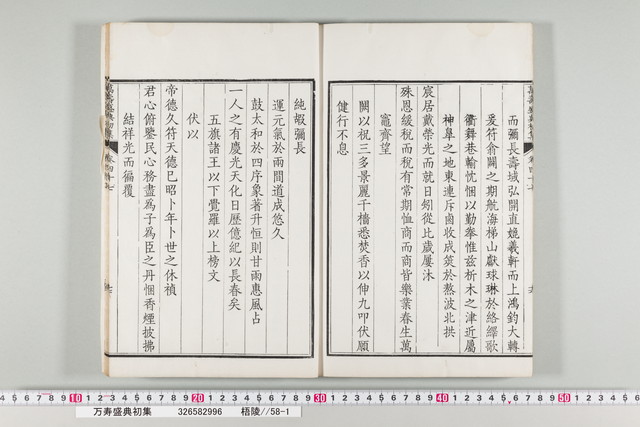 而彌長壽域弘開直媲羲軒而上鴻鈞大轉
爰符翕闢之期航海梯山獻球琳於絡繹歌
衢舞巷輸忱悃以勤拳惟兹析木之津近屬
神臯之地東連斥鹵收成筴於熬波北拱
宸居戴榮光而就日矧從比歲屢沐
殊恩緩稅而稅有常期恤商而商皆樂業春生萬
竈齊望
闕以祝三多景麗千檣悉焚香以伸九叩伏願
健行不息
純嘏彌長
運元氣於兩間道成悠久
鼓太和於四序象著升恒則甘雨惠風占
一人之有慶光天化日歷億紀以長春矣
五旗諸王以下覺羅以上榜文
伏以
帝德久符天德已昭卜年卜世之休禎
君心俯鑒民心務盡為子為臣之丹悃香煙披拂
結祥光而徧覆
10 20 30 40 50
万寿盛典初集 326582996 梧陵//58-1